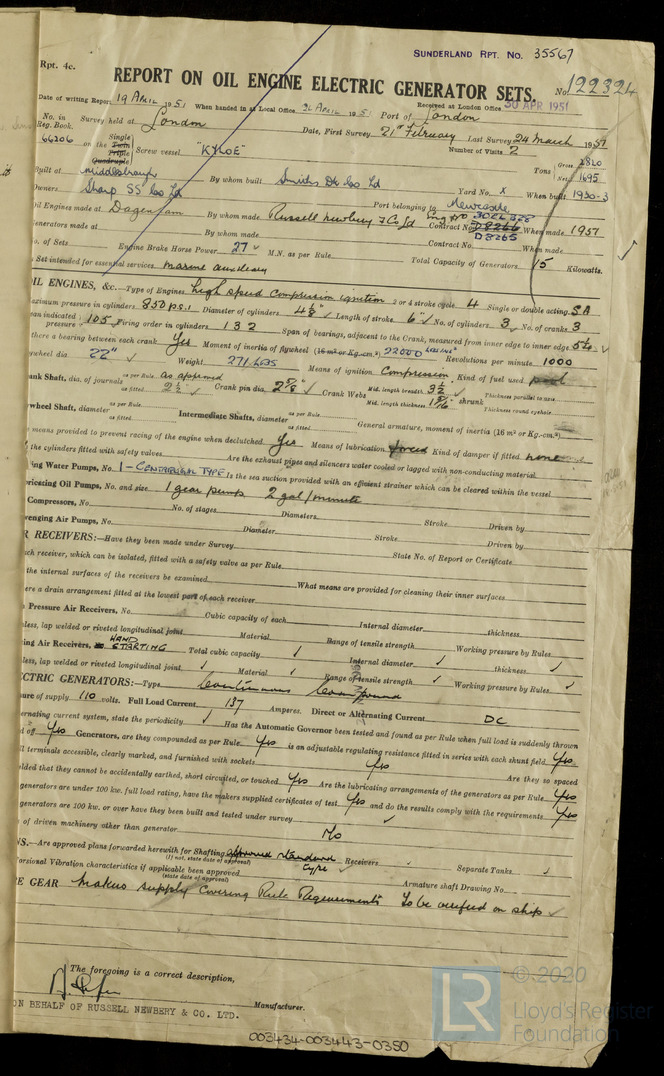 SUNDERLAND RPT. No. 35567
Rpt. 4c.
REPORT ON OIL ENGINE ELECTRIC GENERATOR SETS. No. 122324
Date of writing Report 19 April 1951 When handed in at Local Office 1951 Received at London Office 30 APR 1951
No. in Reg. Book. Survey held at London Port of London
Date, First Survey 21st February Last Survey 24 March 1951
66206 on the Single Twin Triple Quadruple Screw vessel "KYLOE" Number of Visits 2
Tons Gross 2820 Net 1695
Built of Middlesbrough By whom built Smiths Dk Co Ld Yard No. x When built 1930-3
Owners Sharp SS Co Ld Port belonging to Newcastle
Oil Engines made at Dagenham By whom made Russell Newbery & Co Ld Contract No. D8265 When made 1951
Generators made at By whom made Contract No. When made
No. of Sets Engine Brake Horse Power 27 M.N. as per Rule Total Capacity of Generators 15 Kilowatts.
Set intended for essential services marine auxiliary
OIL ENGINES, &c.—Type of Engines high speed compression ignition 2 or 4 stroke cycle 4 Single or double acting SA
Maximum pressure in cylinders 850 p.s.i. Diameter of cylinders Length of stroke 6" No. of cylinders 3 No. of cranks 3
mean indicated pressure 105 Firing order in cylinders 1 3 2 Span of bearings, adjacent to the Crank, measured from inner edge to inner edge
there a bearing between each crank Yes Moment of inertia of flywheel (16 m² or Kg.-cm.²) 22000 Revolutions per minute 1000
flywheel dia. 22" Weight 271 lbs Means of ignition Compression Kind of fuel used
Crank Shaft, dia. of journals as per Rule as approved as fitted 2½" Crank pin dia. Crank Webs Mid. length breadth 3½ Mid. length thickness shrunk Thickness parallel to axis Thickness round eyehole
Flywheel Shaft, diameter as per Rule as fitted Intermediate Shafts, diameter as per Rule as fitted General armature, moment of inertia (16 m² or Kg.-cm.²)
means provided to prevent racing of the engine when declutched Yes Means of lubrication forced Kind of damper if fitted none
the cylinders fitted with safety valves Are the exhaust pipes and silencers water cooled or lagged with non-conducting material
Cooling Water Pumps, No. 1 - CENTRIFUGAL TYPE Is the sea suction provided with an efficient strainer which can be cleared within the vessel
Lubricating Oil Pumps, No. and size 1 gear pump 2 gal/minute
Compressors, No. No. of stages Diameters Stroke Driven by
Scavenging Air Pumps, No. Diameter Stroke Driven by
AIR RECEIVERS:—Have they been made under Survey State No. of Report or Certificate
each receiver, which can be isolated, fitted with a safety valve as per Rule
the internal surfaces of the receivers be examined What means are provided for cleaning their inner surfaces
there a drain arrangement fitted at the lowest part of each receiver
Pressure Air Receivers, No. Cubic capacity of each Internal diameter thickness
seamless, lap welded or riveted longitudinal joint Material Range of tensile strength Working pressure by Rules
Starting Air Receivers, No. HAND STARTING Total cubic capacity ✓ Internal diameter ✓ thickness ✓
seamless, lap welded or riveted longitudinal joint ✓ Material ✓ Range of tensile strength ✓ Working pressure by Rules ✓
ELECTRIC GENERATORS:—Type Continuous Compound
Pressure of supply 110 volts. Full Load Current 137 Amperes. Direct or Alternating Current DC
alternating current system, state the periodicity ✓ Has the Automatic Governor been tested and found as per Rule when full load is suddenly thrown
and off Yes Generators, are they compounded as per Rule Yes is an adjustable regulating resistance fitted in series with each shunt field Yes
all terminals accessible, clearly marked, and furnished with sockets Yes Are they so spaced
shielded that they cannot be accidentally earthed, short circuited, or touched Yes Are the lubricating arrangements of the generators as per Rule Yes
generators are under 100 kw. full load rating, have the makers supplied certificates of test Yes and do the results comply with the requirements Yes
generators are 100 kw. or over have they been built and tested under survey ✓
of driven machinery other than generator No
PLANS.—Are approved plans forwarded herewith for Shafting approved standard type Receivers Separate Tanks ✓
(If not, state date of approval)
Torsional Vibration characteristics if applicable been approved ✓ Armature shaft Drawing No.
(state date of approval)
SPARE GEAR Makers supply covering Rule Requirements To be verified on ship ✓
The foregoing is a correct description,
ON BEHALF OF RUSSELL NEWBERY & CO. LTD. Manufacturer.
003434-003443-0350
LR © 2020
Lloyd's Register
Foundation